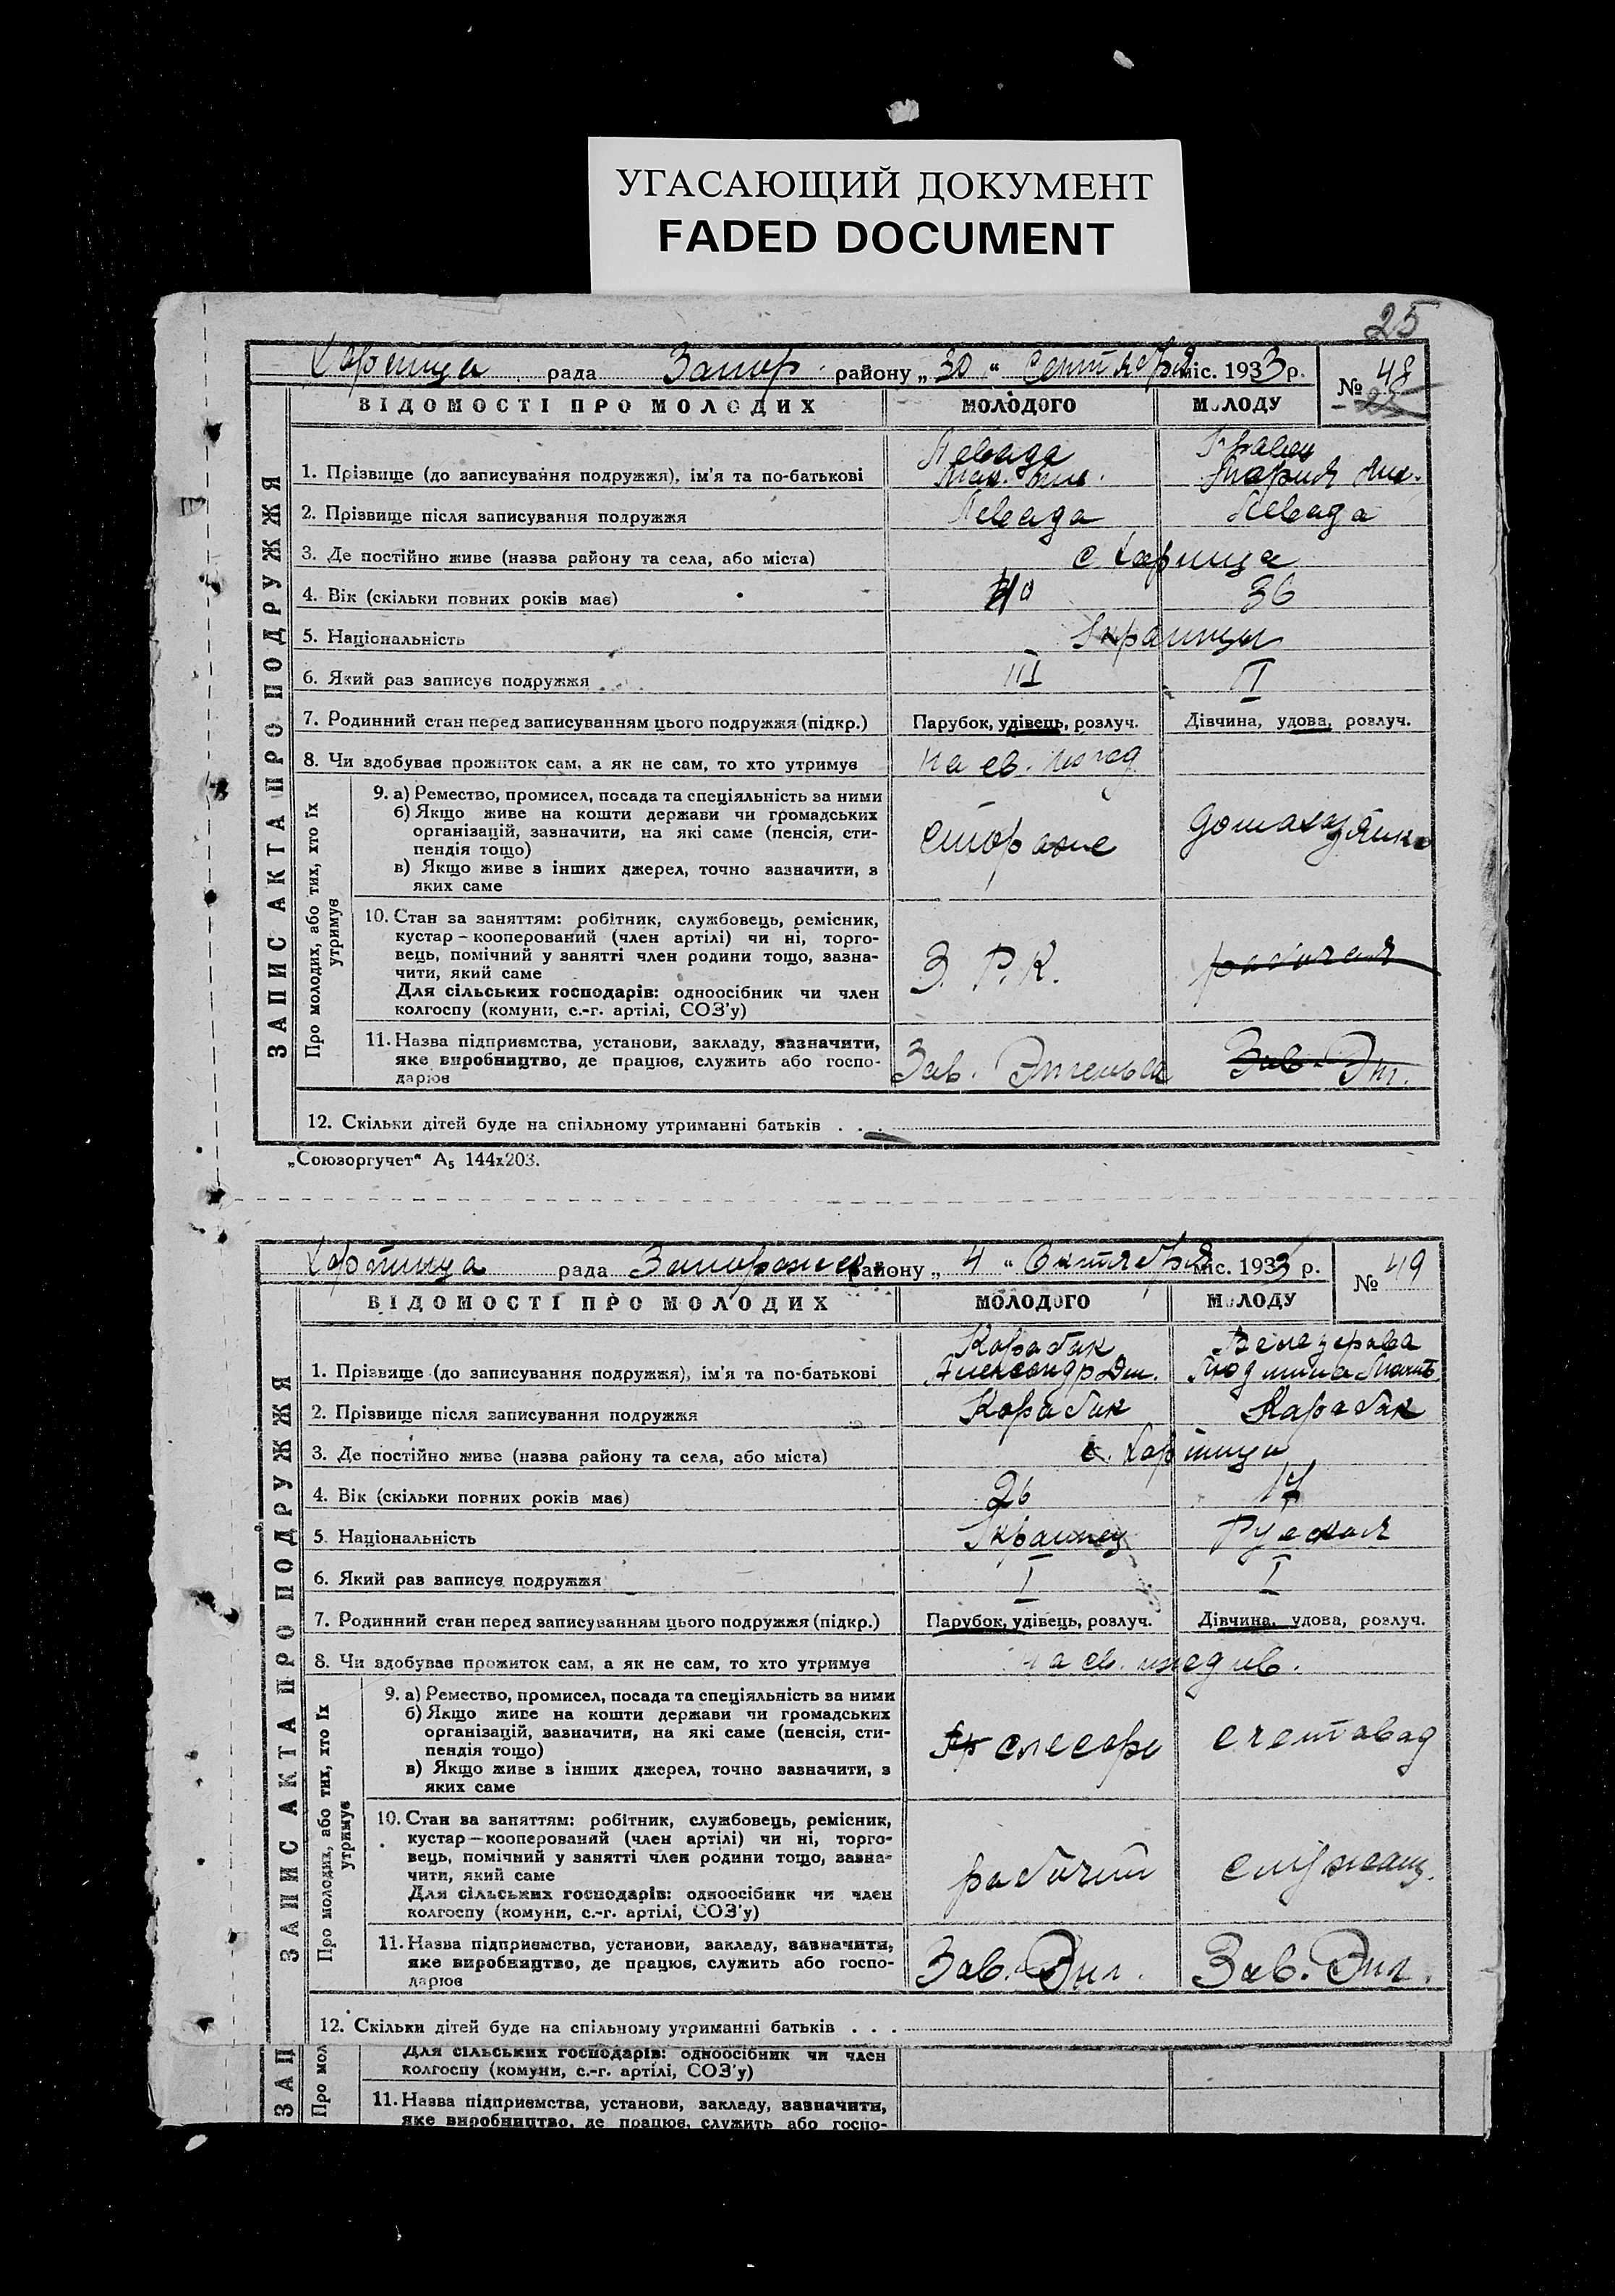 УГАСАЮЩИЙ ДОКУМЕНТ
FADED DOCUMENT
25
Хортица рада Запор. району „30“ Сентября міс. 1933 р. № 48
ВІДОМОСТІ ПРО МОЛОДИХ МОЛОДОГО МОЛОДУ
ЗАПИС АКТА ПРО ПОДРУЖЖЯ
Левада
1. Прізвище (до записування подружжя), ім'я та по-батькові Мария
2. Прізвище після записування подружжя Левада Левада
3. Де постійно живе (назва району та села, або міста) с Хортица
4. Вік (скільки повних років має) 40 36
5. Національність Украинцы
6. Який раз записує подружжя III II
7. Родинний стан перед записуванням цього подружжя (підкр.) Парубок, удівець, розлуч. Дівчина, удова, розлуч.
8. Чи здобуває прожиток сам, а як не сам, то хто утримує на св.
Про молодих, або тих, хто їх утримує
9. а) Ремество, промисел, посада та спеціяльність за ними
б) Якщо живе на кошти держави чи громадських
організацій, зазначити, на які саме (пенсія, сти-
пендія тощо)
в) Якщо живе з інших джерел, точно зазначити, з
яких саме
сторож домахозяйка
10. Стан за заняттям: робітник, службовець, ремісник,
кустар – кооперований (член артілі) чи ні, торго-
вець, помічний у занятті член родини тощо, зазна-
чити, який саме
Для сільських господарів: одноосібник чи член
колгоспу (комуни, с.-г. артілі, СОЗ'у)
З. Р. К. рабочая
11. Назва підприємства, установи, закладу, зазначити,
яке виробництво, де працює, служить або госпо-
дарює
Зав. Энгельса Зав. Энг.
12. Скільки дітей буде на спільному утриманні батьків . . .
„Союзоргучет“ А5 144х203.
Хортица рада Запорожск району „4“ Октября міс. 1933 р. № 49
ВІДОМОСТІ ПРО МОЛОДИХ МОЛОДОГО МОЛОДУ
ЗАПИС АКТА ПРО ПОДРУЖЖЯ
Карабак
1. Прізвище (до записування подружжя), ім'я та по-батькові Александр Дм. Людмила
2. Прізвище після записування подружжя Карабак Карабак
3. Де постійно живе (назва району та села, або міста) с. Хортица
4. Вік (скільки повних років має) 26 17
5. Національність Украинец Руская
6. Який раз записує подружжя I I
7. Родинний стан перед записуванням цього подружжя (підкр.) Парубок, удівець, розлуч. Дівчина, удова, розлуч.
8. Чи здобуває прожиток сам, а як не сам, то хто утримує на св. иждив.
Про молодих, або тих, хто їх утримує
9. а) Ремество, промисел, посада та спеціяльність за ними
б) Якщо живе на кошти держави чи громадських
організацій, зазначити, на які саме (пенсія, сти-
пендія тощо)
в) Якщо живе з інших джерел, точно зазначити, з
яких саме
слесарь счетавод
10. Стан за заняттям: робітник, службовець, ремісник,
кустар—кооперований (член артілі) чи ні, торго-
вець, помічний у занятті член родини тощо, зазна-
чити, який саме
Для сільських господарів: одноосібник чи член
колгоспу (комуни, с.-г. артілі, СОЗ'у)
рабочий служащ.
11. Назва підприємства, установи, закладу, зазначити,
яке виробництво, де працює, служить або госпо-
дарює
Зав. Энг. Зав. Энг.
12. Скільки дітей буде на спільному утриманні батьків . . .
ЗАП
Про мол
Для сільських господарів: одноосібник чи член
колгоспу (комуни, с.-г. артілі, СОЗ'у)
11. Назва підприємства, установи, закладу, зазначити,
яке виробництво, де працює, служить або госпо-